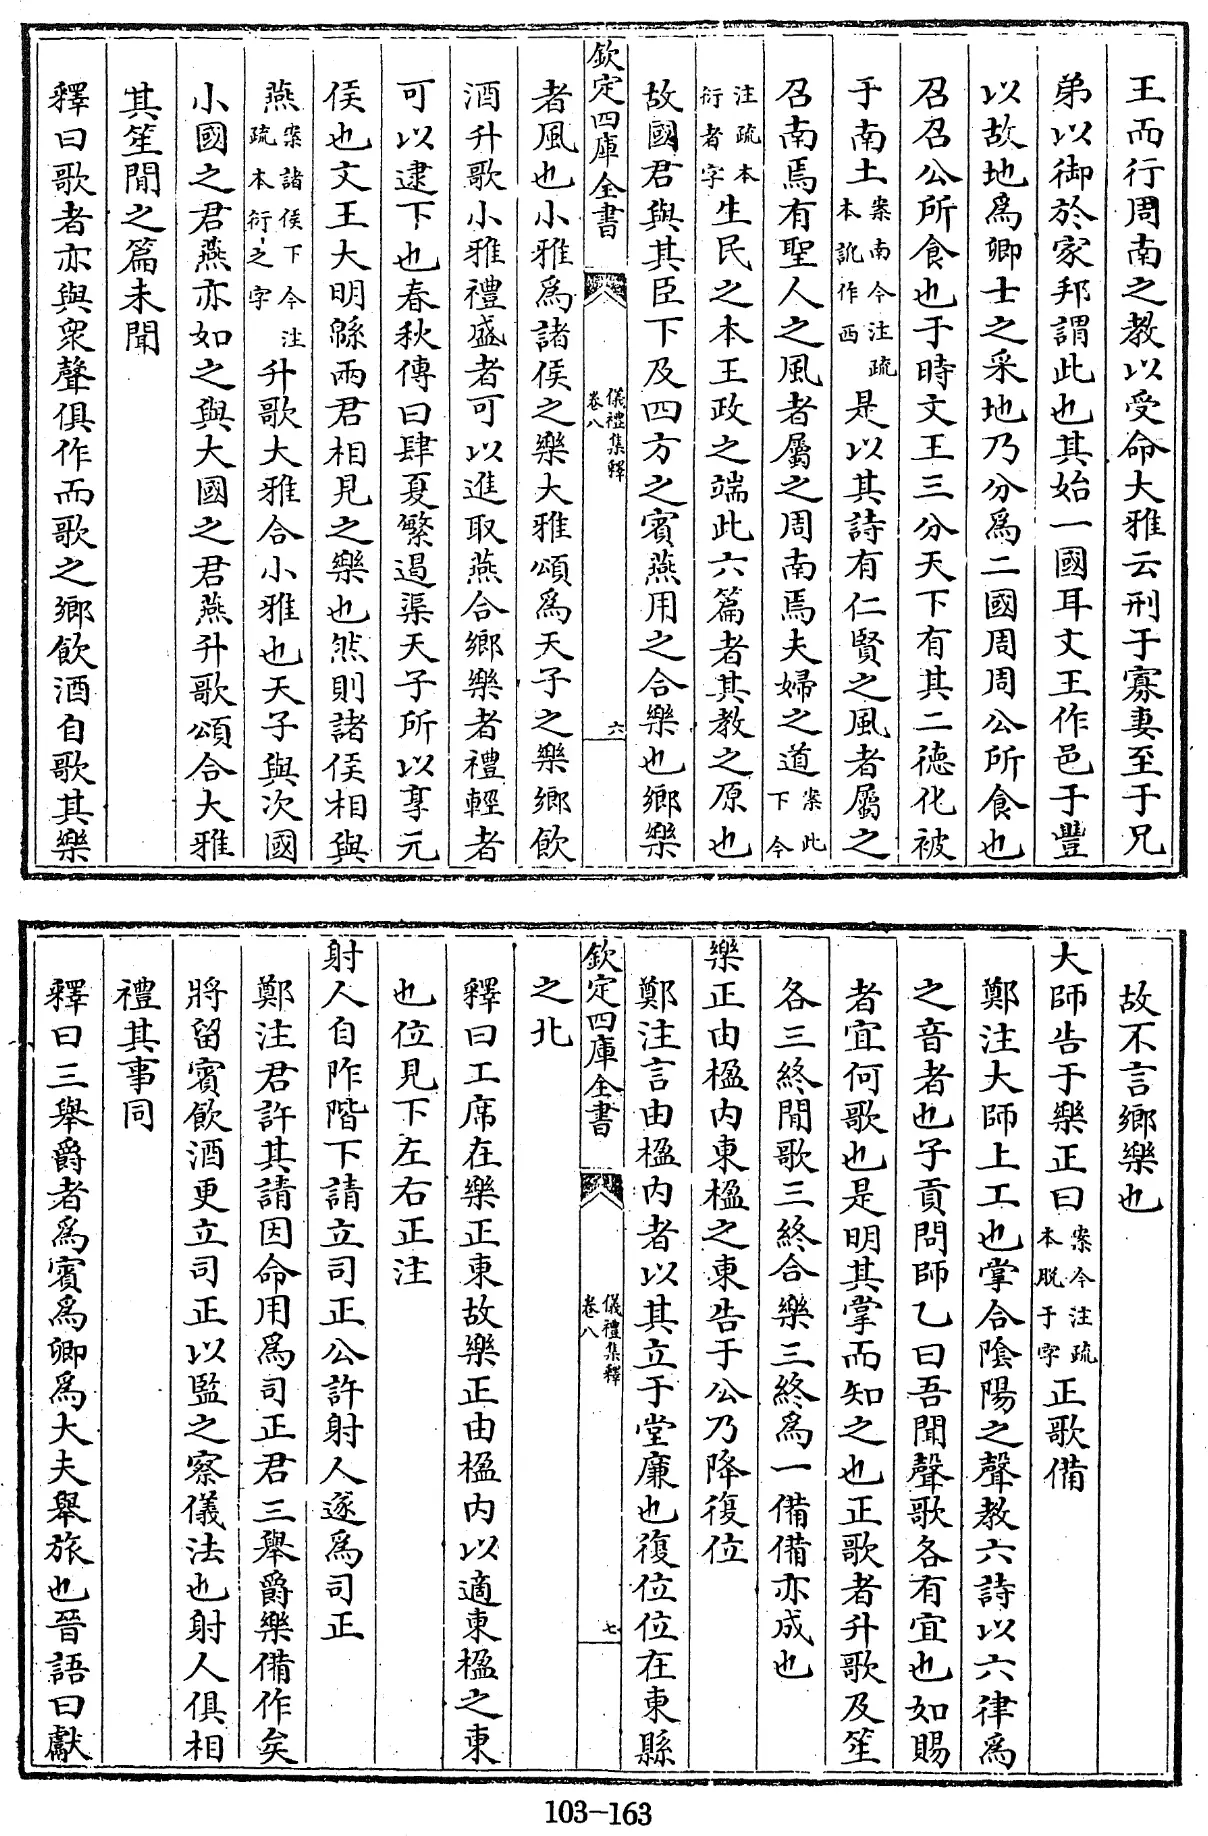 王而行周南之教以受命大雅云刑于寡妻至于兄
弟以御於家邦謂此也其始一國耳文王作邑于豐
以故地為卿士之采地乃分為二國周周公所食也
召召公所食也于時文王三分天下有其二德化被
于南土案南今注疏本訛作西是以其詩有仁賢之風者屬之
召南焉有聖人之風者屬之周南焉夫婦之道案此下今
注疏本衍者字生民之本王政之端此六篇者其教之原也
故國君與其臣下及四方之賓燕用之合樂也鄉樂
欽定四庫全書
儀禮集釋
卷八
六
者風也小雅為諸侯之樂大雅頌為天子之樂鄉飲
酒升歌小雅禮盛者可以進取燕合鄉樂者禮輕者
可以逮下也春秋傳曰肆夏繁遏渠天子所以享元
侯也文王大明緜兩君相見之樂也然則諸侯相與
燕案諸侯下今注疏本衍之字升歌大雅合小雅也天子與次國
小國之君燕亦如之與大國之君燕升歌頌合大雅
其笙閒之篇未聞
釋曰歌者亦與衆聲俱作而歌之鄉飲酒自歌其樂
故不言鄉樂也
大師告于樂正曰案今注疏本脫于字正歌備
鄭注大師上工也掌合陰陽之聲教六詩以六律為
之音者也子貢問師乙曰吾聞聲歌各有宜也如賜
者宜何歌也是明其掌而知之也正歌者升歌及笙
各三終閒歌三終合樂三終為一備備亦成也
樂正由楹內東楹之東告于公乃降復位
鄭注言由楹內者以其立于堂廉也復位位在東縣
欽定四庫全書
儀禮集釋
卷八
七
之北
釋曰工席在樂正東故樂正由楹內以適東楹之東
也位見下左右正注
射人自阼階下請立司正公許射人遂為司正
鄭注君許其請因命用為司正君三舉爵樂備作矣
將留賓飲酒更立司正以監之察儀法也射人俱相
禮其事同
釋曰三舉爵者為賓為卿為大夫舉旅也晉語曰獻
103-163